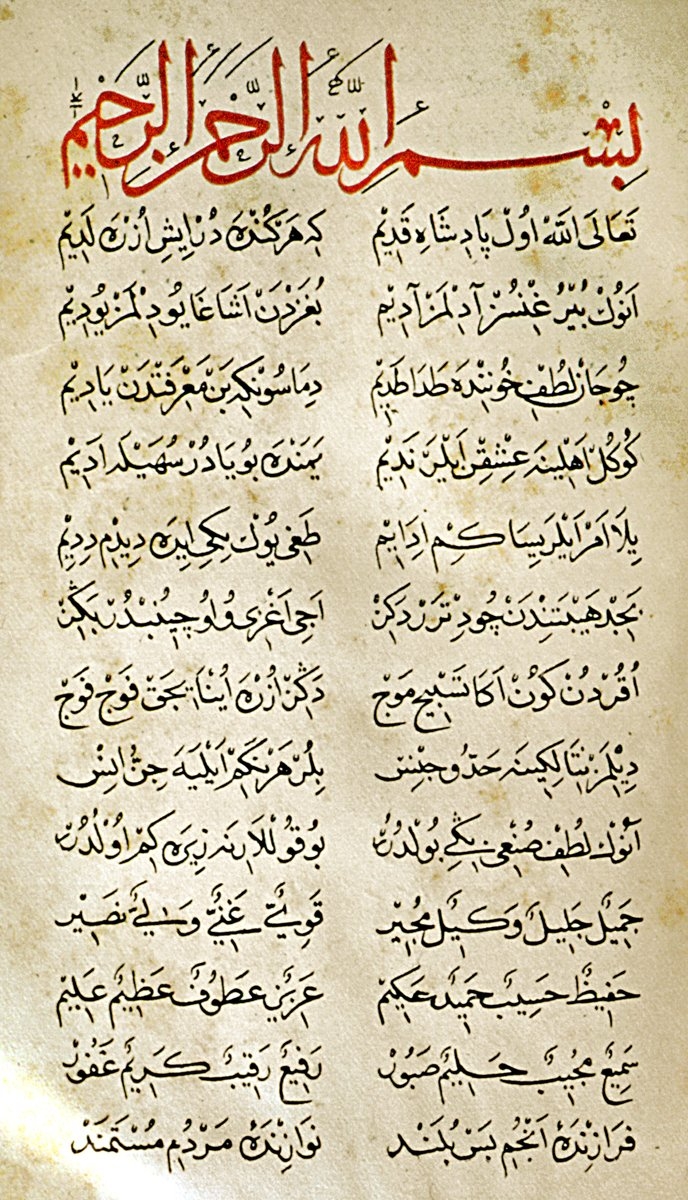 بِسْمِ اللّٰهِ الرَّحْمٰنِ الرَّحِيمِ
تَعَالَى اللّٰه اَوُلْ پَادِشَاهِ قَدِيمْ كِه هَرْ كُنْدَه دُرْ اِيشِ اُزْرَه لَدِيمْ
اَنُوكْ بُيْرُغْنسُزْ آدِلْمَزْ آدِيمْ بُغَزْدَنْ اَشَاغَا يُودِلْمَزْ يُودِيمْ
چُو جَانْ لُطْفِ خُونِنْدَه طَدَا طَدِيمْ دِمَاسُونْكِه بَنْ مَعْرِفَتْدَنْ يَادِيمْ
كُوكُلْ اَهْلِينَه عِشْقِنْ اَيْلَرْ نَدِيمْ يَمَنْدَه بُويَادُرْ سُهَيْلَه اَدِيمْ
بِلَا اَمْرْ اَيْلَرِيسَا كِمْ اِدَايِمْ طَغِى يُوكْ بِكِى اِيرَه دِيدِمْ دِدِيمْ
اَجِى اَغْزِى وُ اُوچِينُبْدُرْ بَكِزْ
اُقُرْ دُنْ كَونْ اَكَا تَسْبِيحْ مَوجْ دَكِزْ اُزْرَه اُينَا بِجَقْ فَوجْ فَوجْ
بِلُرْ هَرْ نَكِمْ اَيْلَيَه جِنُّ اِنِسْ
اَنُوكْ لُطْفِ صُنْعِى بُولْدُرُرْ بُو قُولْلَارِنَه زِيرَه كِمْ اُولُدُرْ
جَمِيلٌ جَلِيلٌ وَكِيلٌ مُجِيرْ قَوِيٌّ غَنِيٌّ وَلِيٌّ نَصِيرْ
حَفِيظٌ حَسِيبٌ حَمِيدٌ حَكِيمْ عَزِيزٌ عَطُوفٌ عَظِيمٌ عَلِيمْ
سَمِيعٌ مُجِيبٌ حَلِيمٌ صَبُورْ رَفِيعٌ رَقِيبٌ كَرِيمٌ غَفُورْ
فَرَازِنْدَهٔ اَنْجُمِ بَسْ بُلَنْد نَوَازِنْدَهٔ مَرْدُمِ مُسْتَمَنْد